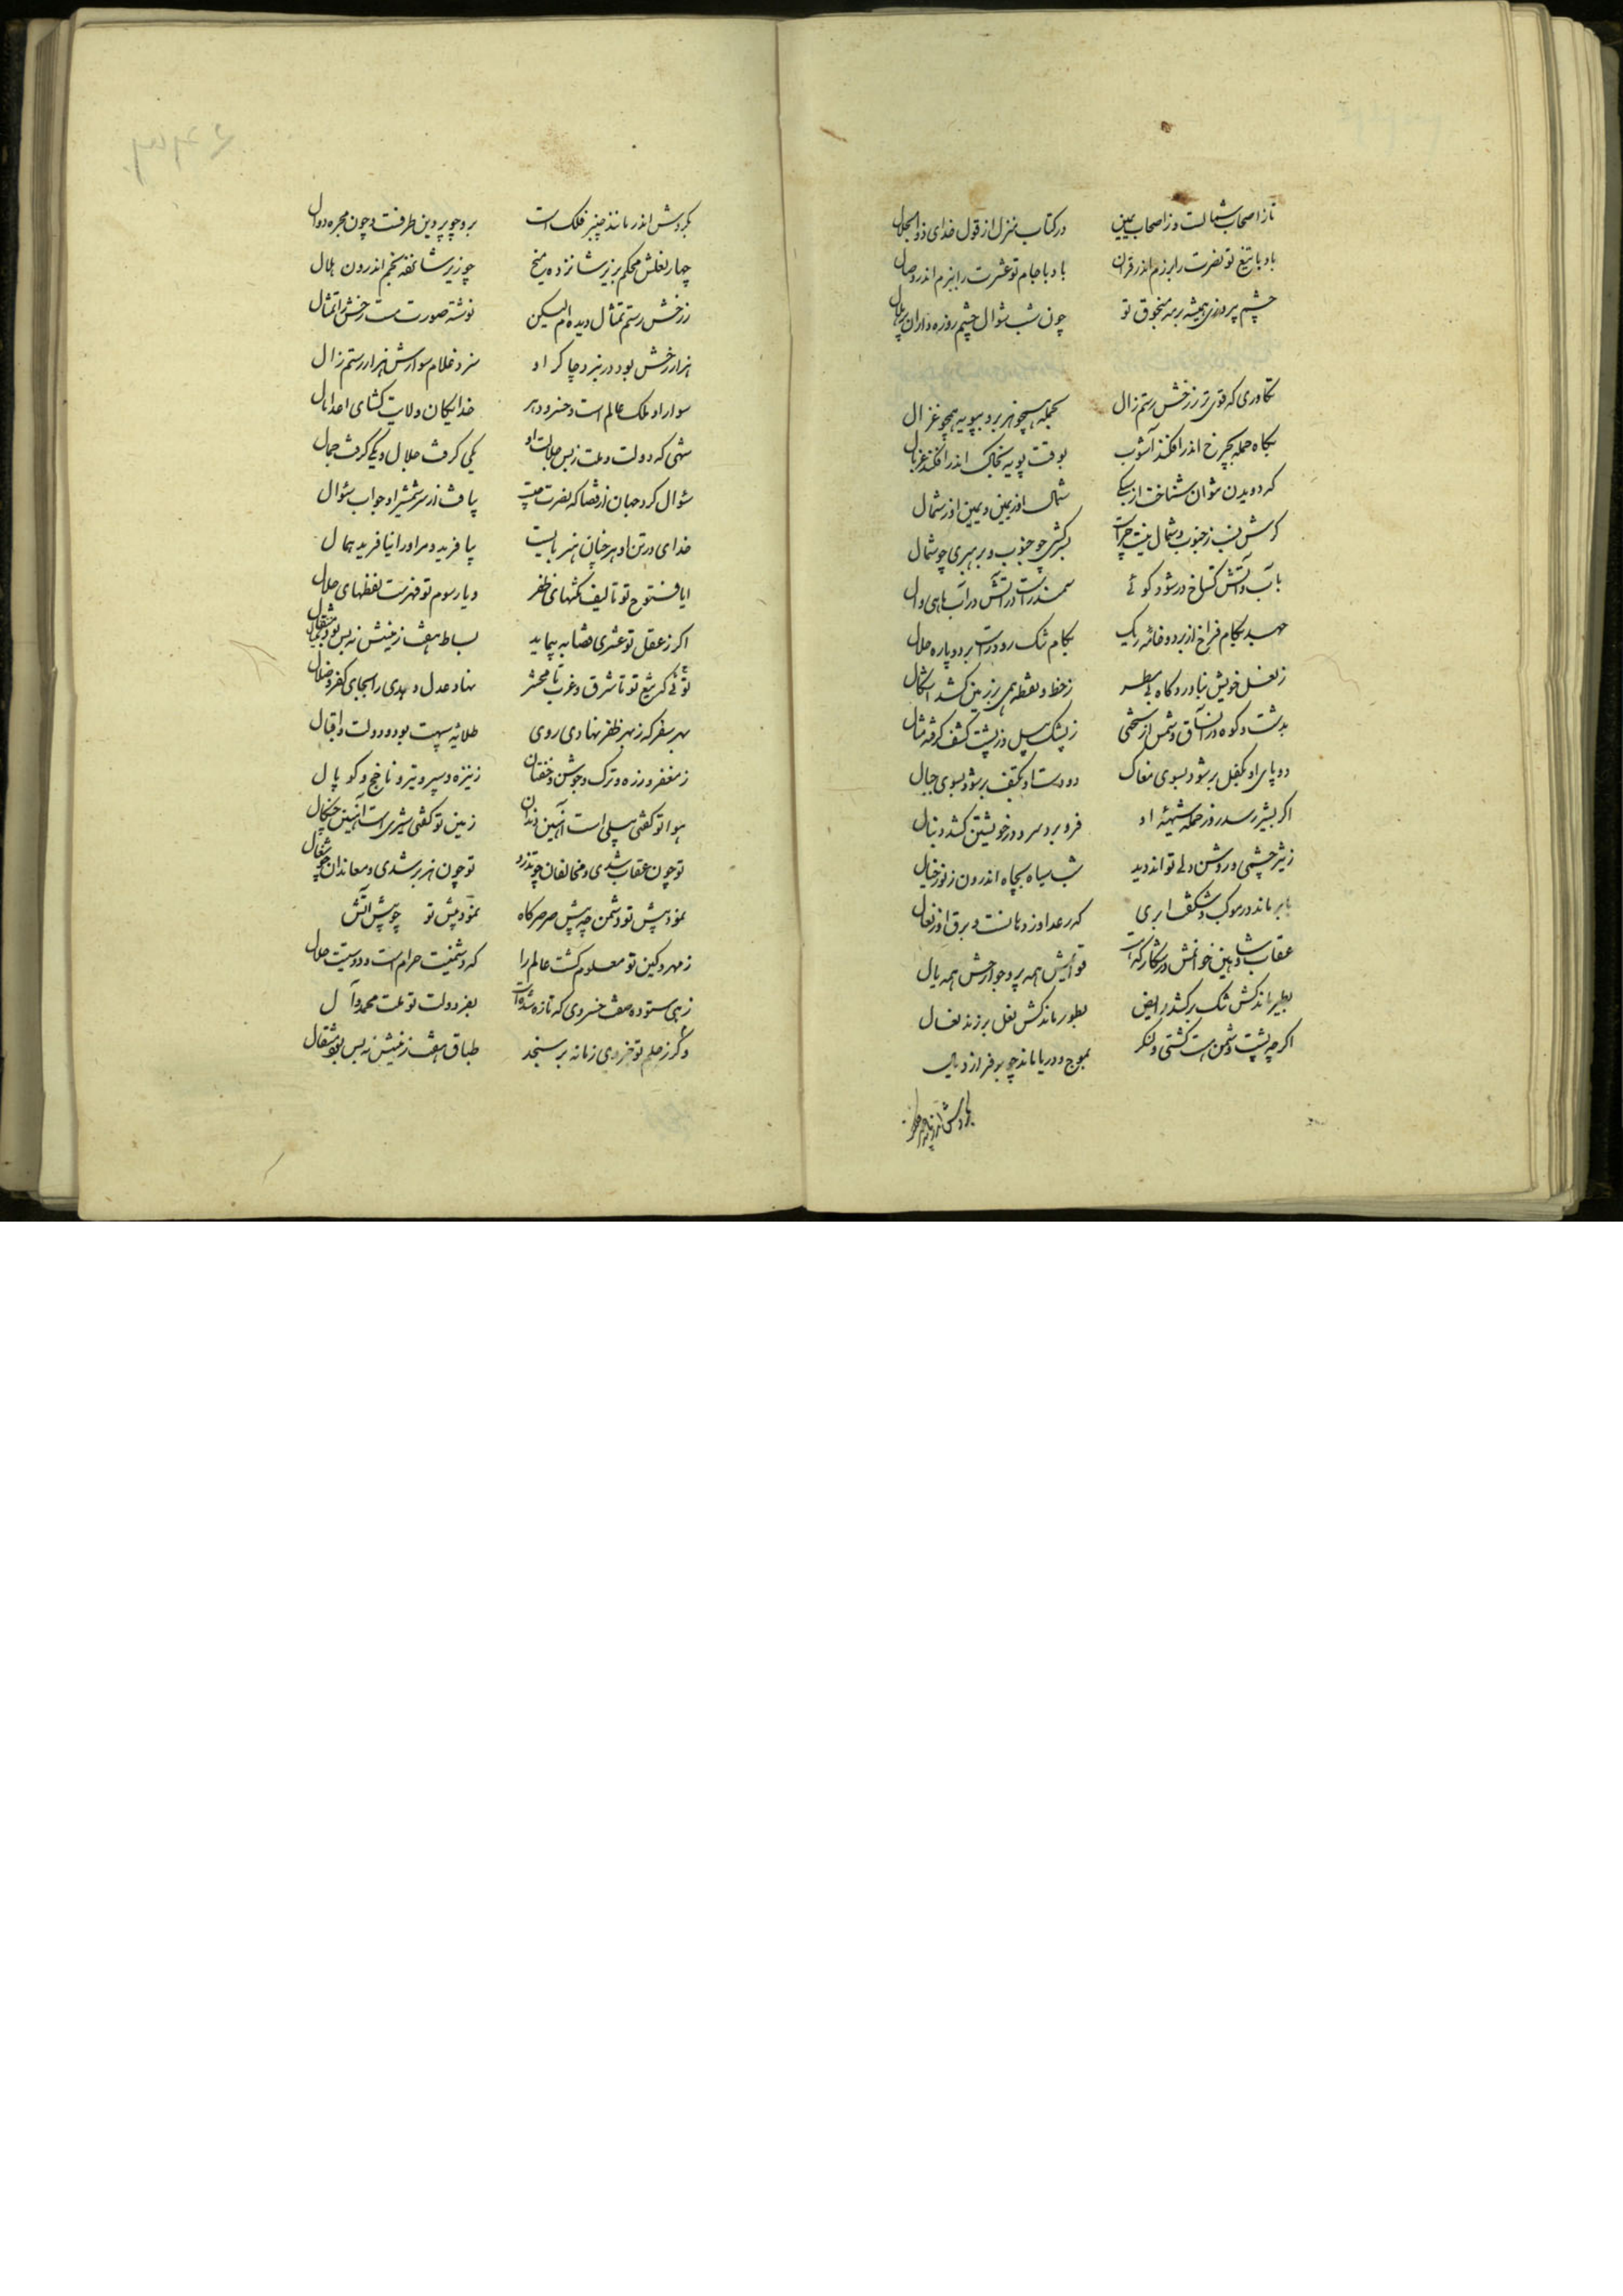 تا ز اصحاب شمالست و ز اصحاب یمین در کتاب منزل از قول خدای ذوالجلال
باد با تیغ تو نصرت را برزم اندر قران باد با جام تو عشرت را ببزم اندر وصال
چشم پیروزی همیشه بر مه منجوق تو چون شب شوال چشم روزه داران بر هلال
تکاوری که قوی تر ز رخش رستم زال بحمله همچو هزبر و بپویه همچو غزال
بگاه حمله بچرخ اندر افکند آشوب بوقت پویه بخاک اندر افکند غربال
که دویدن نتوان شناخت از سبکی شمال او ز یمین و یمین او ز شمال
گرش نسب ز جنوب و شمال نیست چراست بسرکشی چو جنوب و برهبری چو شمال
بآب و آتش گستاخ در شود گوئی سمندرست در آتش در آب ماهی وال
جهد بکام فراخ از بر دو خانه ریک بکام تنگ رود راست بر دو پاره هلال
ز نعل خویش بناورد گاه بی مسطر ز خط و نقطه همی بر زمین کشد اشکال
بدشت و کوه در آن ساق و سمش از سختی ز پشک پیل و ز پشت کشف گرفته مثال
دو پای او بکفل بر شود بسوی مغاک دو دست او بکتف بر شود بسوی جبال
اگر بشیر رسد روز حمله شیهه او فرو برد سر و در خویشتن کشد دنبال
ز تیز چشمی و روشن دلی تواند دید شب سیاه بچاه اندرون ز نور خیال
بابر ماند در موکب و شگفت ابری که رعد او ز دهانست و برق او ز نعال
عقاب و شاهین خوانمش در شکار که هست قوائمش همه پر و جوارحش همه بال
بطیر ماند کش تنگ بر کشد رایض بطور ماند کش نعل بر زند نعال
اگر چه پشت و سمش هست کشتی و لنگر بموج دریا ماند چو بر فراز و
بگردش اندر مانند چنبر فلک است برو چو پروین طرفست و چون مجره دوال
چهار نعلش محکم بزیر شانزده میخ چو زیر شانزده نجم اندرون هلال
ز رخش رستم تمثال دیده ام لیکن نوشته صورت رخش را تمثال
هزار رخش بود در نبرد چاکر او سزد غلام سوارش هزار رستم زال
سوار او ملک عالم است و خسرو دهر خدایگان ولایت گشای اعدا مال
شهی که دولت و ملت ز بس جلالت او یکی گرفت جلال و یکی گرفت جمال
سئوال کرد جهان از قضا که نصرت چیست بیافت از سر شمشیر او جواب سئوال
خدای در تن او هر چنان هنر بایست بیافرید و مر او را نیافرید همال
ایا فتوح تو تالیف نکتهای ظفر و یا رسوم تو فهرست لفظهای جلال
اگر ز عقل تو عشری قضا بپیماید بساط هفت زمینش نه بس بود
توئی که تیغ تو تا شرق و غرب تا محشر نهاد عدل و هدی را بجای کفر و ضلال
بهر سفر که ز بهر ظفر نهادی روی طلایه سپهت بود دولت و اقبال
ز مغفر و زره و ترک و جوشن و خفتان ز نیزه و سپر و تیر و ناخچ و کوپال
هوا تو گفتی پیلی است آهنین دندان زمین تو گفتی شیری است آهنین چنگال
تو چون عقاب شدی و مخالفان چو تذرو تو چون هزبر شدی و معاندان چو شغال
نمود پیش تو دشمن چو پیش صرصر کاه نمود پیش تو چو پیش آتش
ز مهر و کین تو معلوم گشت عالم را که دشمنیت حرام است و دوستیت حلال
زهی ستوده صفت خسروی که تازه شده است بفر دولت تو ملت محمد و آل
و گر ز حلم تو جزوی زمانه بر سنجد طباق هفت زمینش نه بس بود مثقال